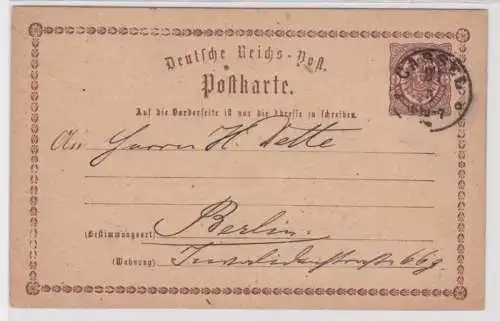 Deutsche Reichs-Post.
Postkarte.
CASSEL
Auf die Vorderseite ist nur die Adresse zu schreiben.
An Herrn H. Dette
(Bestimmungsort) Berlin.
(Wohnung) Invalidenstrasse 66g.